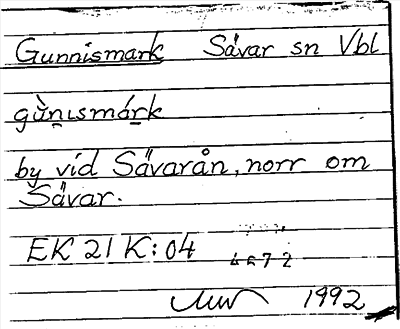 Gunnismark Sävar sn Vbl
gùn̠ısmár̠k
by vid Sävarån, norr om
Sävar.
EK 21 K:04 4672
1992